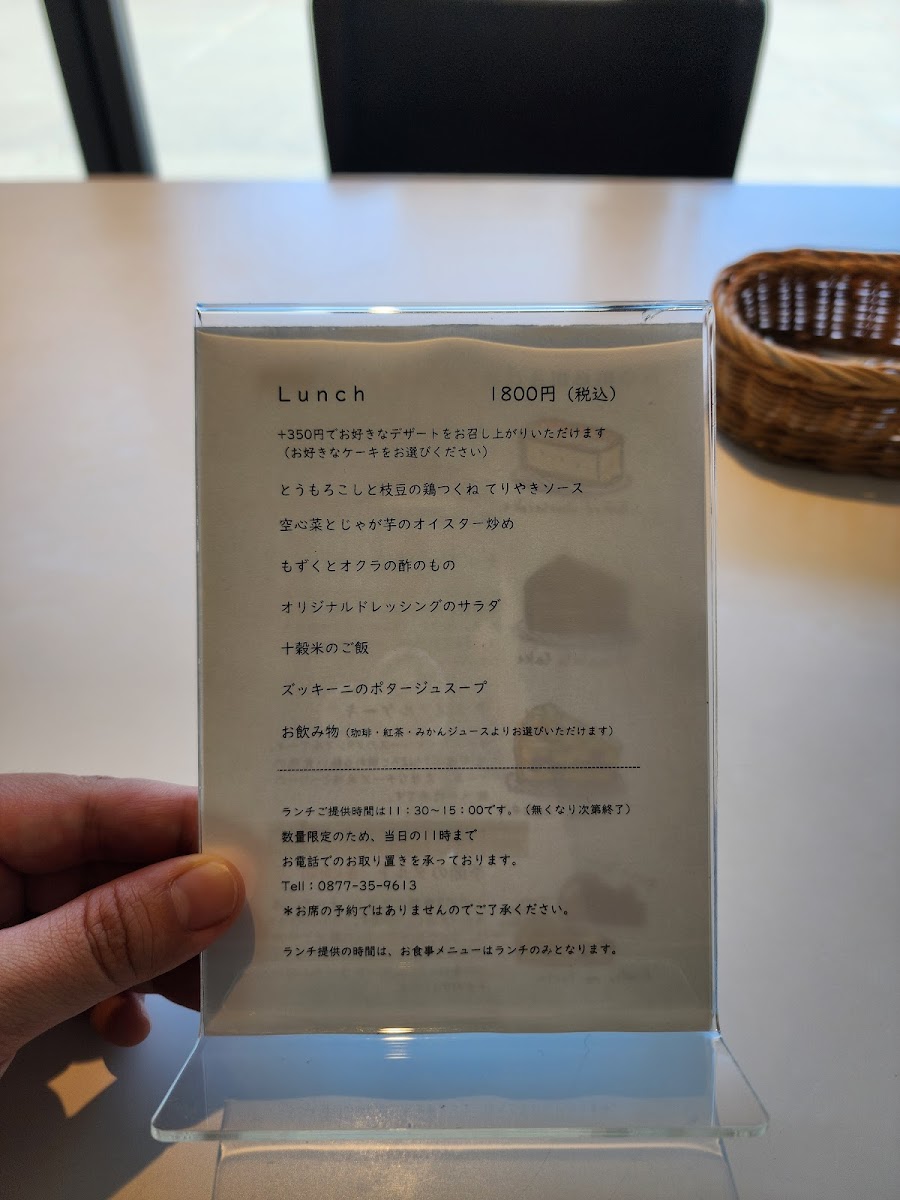 Lunch 1800円（税込）
+350円でお好きなデザートをお召し上がりいただけます
（お好きなケーキをお選びください）
とうもろこしと枝豆の鶏つくね てりやきソース
空心菜とじゃが芋のオイスター炒め
もずくとオクラの酢のもの
オリジナルドレッシングのサラダ
十穀米のご飯
ズッキーニのポタージュスープ
お飲み物（珈琲・紅茶・みかんジュースよりお選びいただけます）
ランチご提供時間は11：30～15：00です。（無くなり次第終了）
数量限定のため、当日の11時まで
お電話でのお取り置きを承っております。
Tell：0877-35-9613
＊お席の予約ではありませんのでご了承ください。
ランチ提供の時間は、お食事メニューはランチのみとなります。